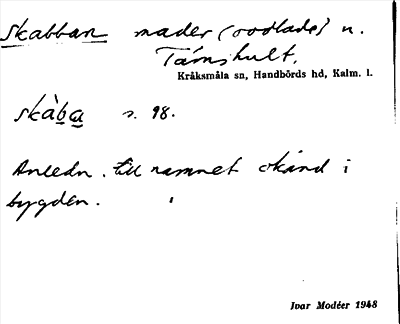 Skabban mader (rodlade) n.
Támshult,
Kråksmåla sn, Handbörds hd, Kalm. l.
skàba s. 98.
Anledn. till namnet okänd i
bygden.
Ivar Modéer 1948